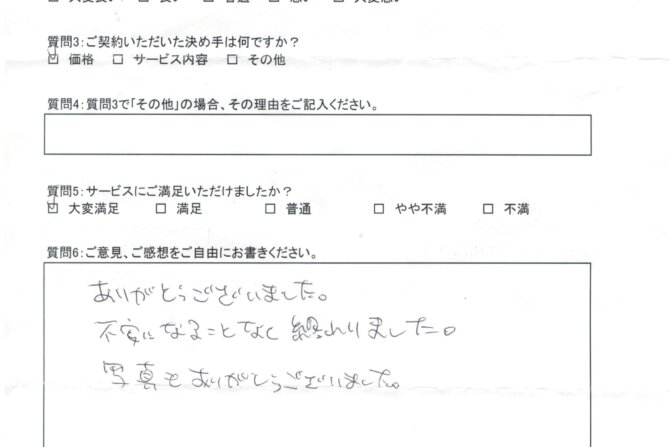 □ 大変良い □ 良い □ 普通 □ 悪い □ 大変悪い
質問3:ご契約いただいた決め手は何ですか?
☑ 価格 □ サービス内容 □ その他
質問4:質問3で「その他」の場合、その理由をご記入ください。
質問5:サービスにご満足いただけましたか?
☑ 大変満足 □ 満足 □ 普通 □ やや不満 □ 不満
質問6:ご意見、ご感想をご自由にお書きください。
ありがとうございました。
不安になることなく終わりました。
写真もありがとうございました。